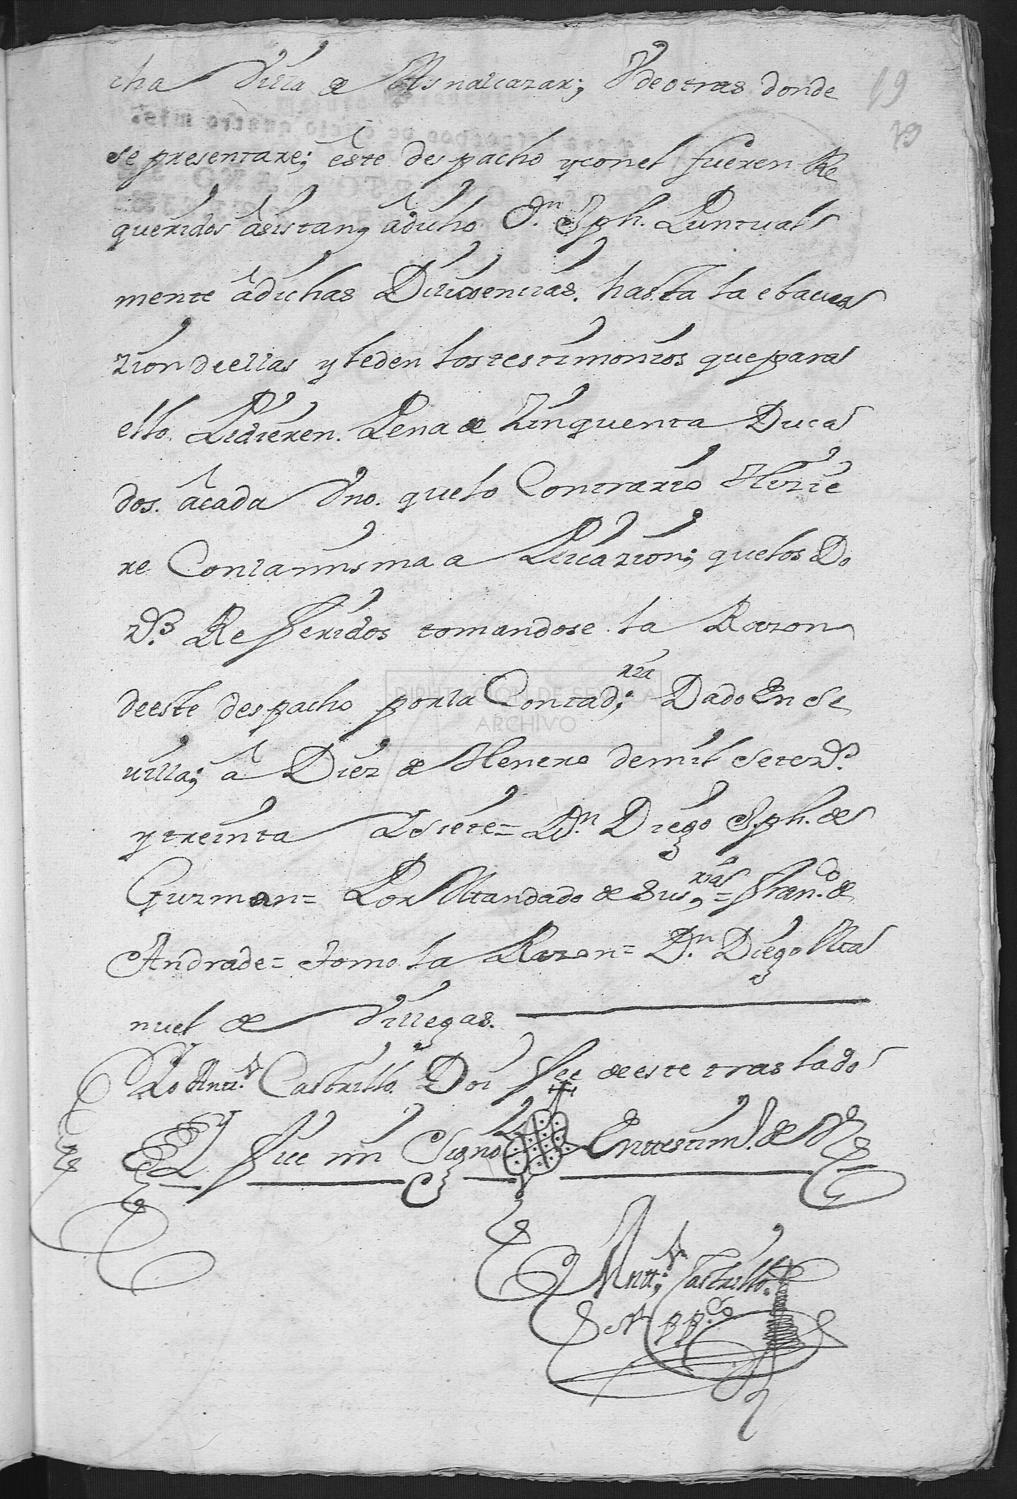 19
19
cha Villa de Asnalcazar; Y de otras donde
se presentare; este despacho y con el fueren Re
queridos asistan, a dicho Dn. Jph. Puntual
mente a dichas Dilixencias. hasta la ebacua
zion de ellas y le den los testimonios que para
ello. Pidieren. Pena de Zinquenta Duca
dos. a cada Vno. que lo Contrario Hizie
re Con la missma aplicazion; que los Do
z.s Refferidos tomandose la Razon
de este despacho por la Contad;ria Dado En Se
villa; a Diez de Henero de mil Setez.s
y treinta y siete = Dn. Diego Jph. de
Guzman = Por Mandado de Sus, rias = Fran.co de
Andrade = tomo la Razon = Dn. Diego Ma
nuel de Villegas.
Yo Antt.o Castrillo. Doi fee de este traslado
Y fue mi Signo En testim.o de
Antt.o Castrillo.
DIPUTACIÓN DE SEVILLA
ARCHIVO